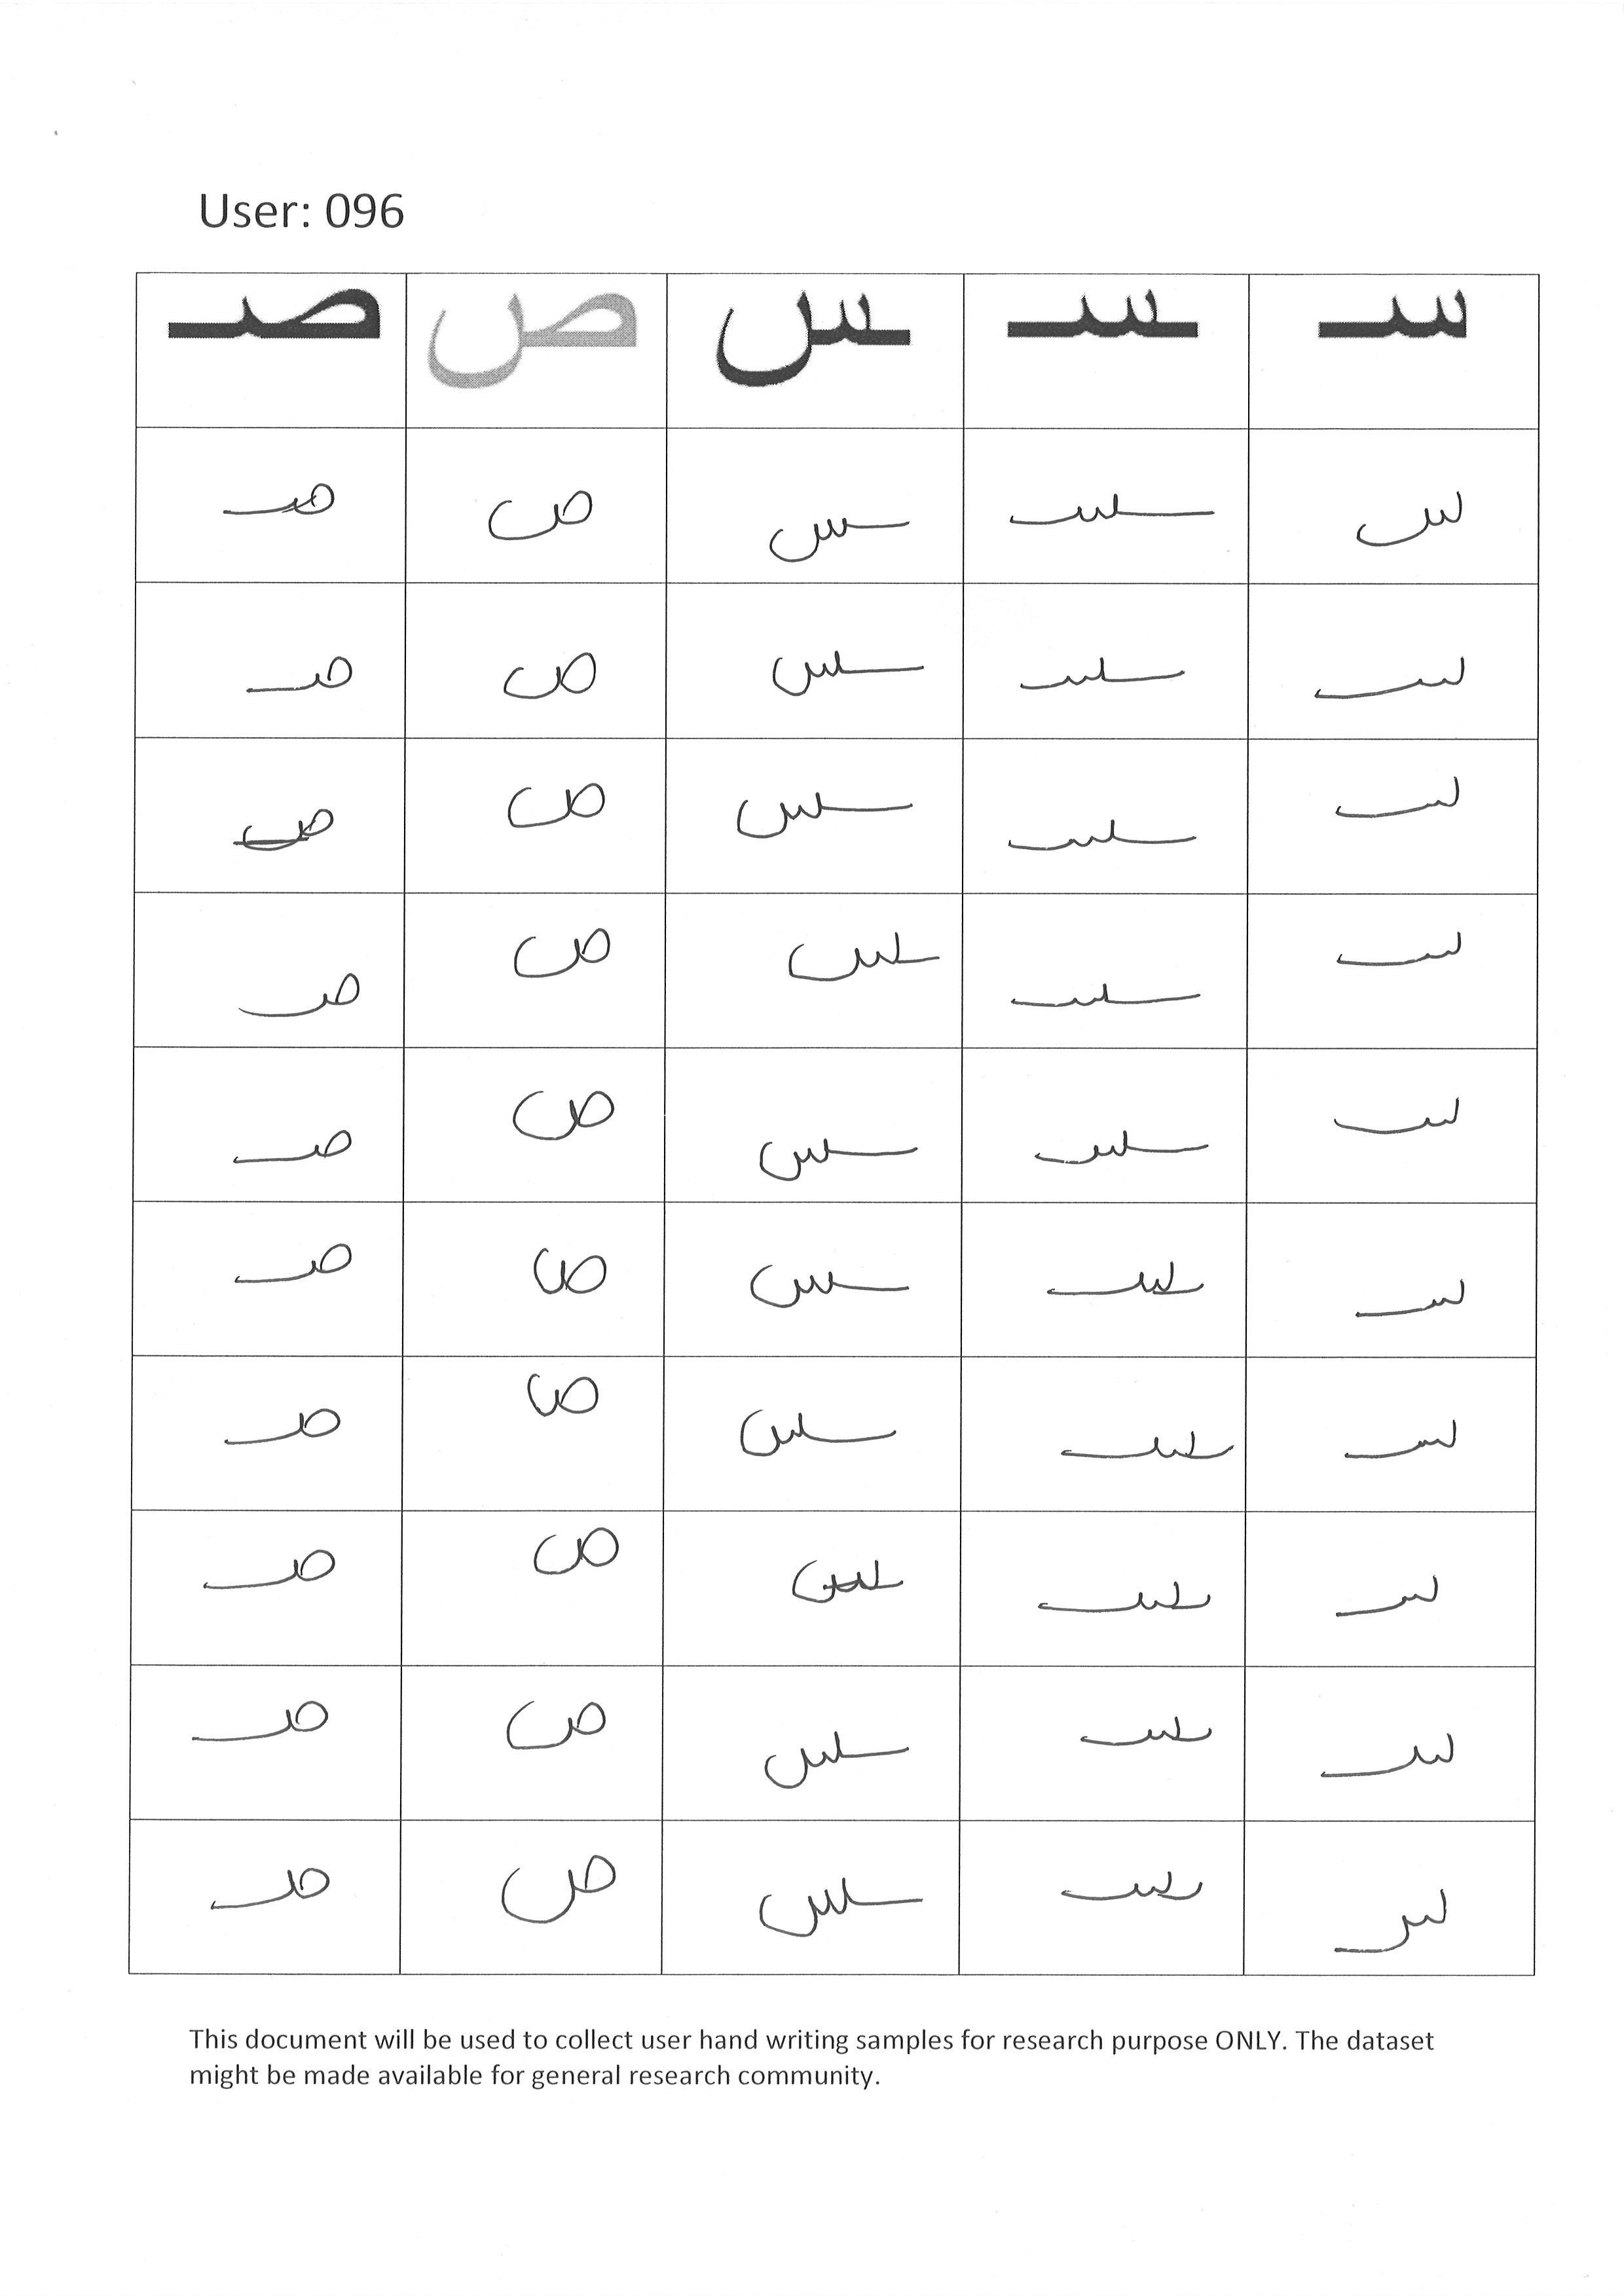 User: 096
سـ ـسـ ـس ص صـ
س ـسـ ـس ص صـ
سـ ـسـ ـس ص صـ
سـ ـسـ ـس ص صـ
سـ ـسـ ـس ص صـ
سـ ـسـ ـس ص صـ
سـ ـسـ ـس ص صـ
سـ ـسـ ـس ص صـ
سـ ـسـ ـس ص صـ
سـ ـسـ ـس ص صـ
سـ ـسـ ـس ص صـ
This document will be used to collect user hand writing samples for research purpose ONLY. The dataset
might be made available for general research community.